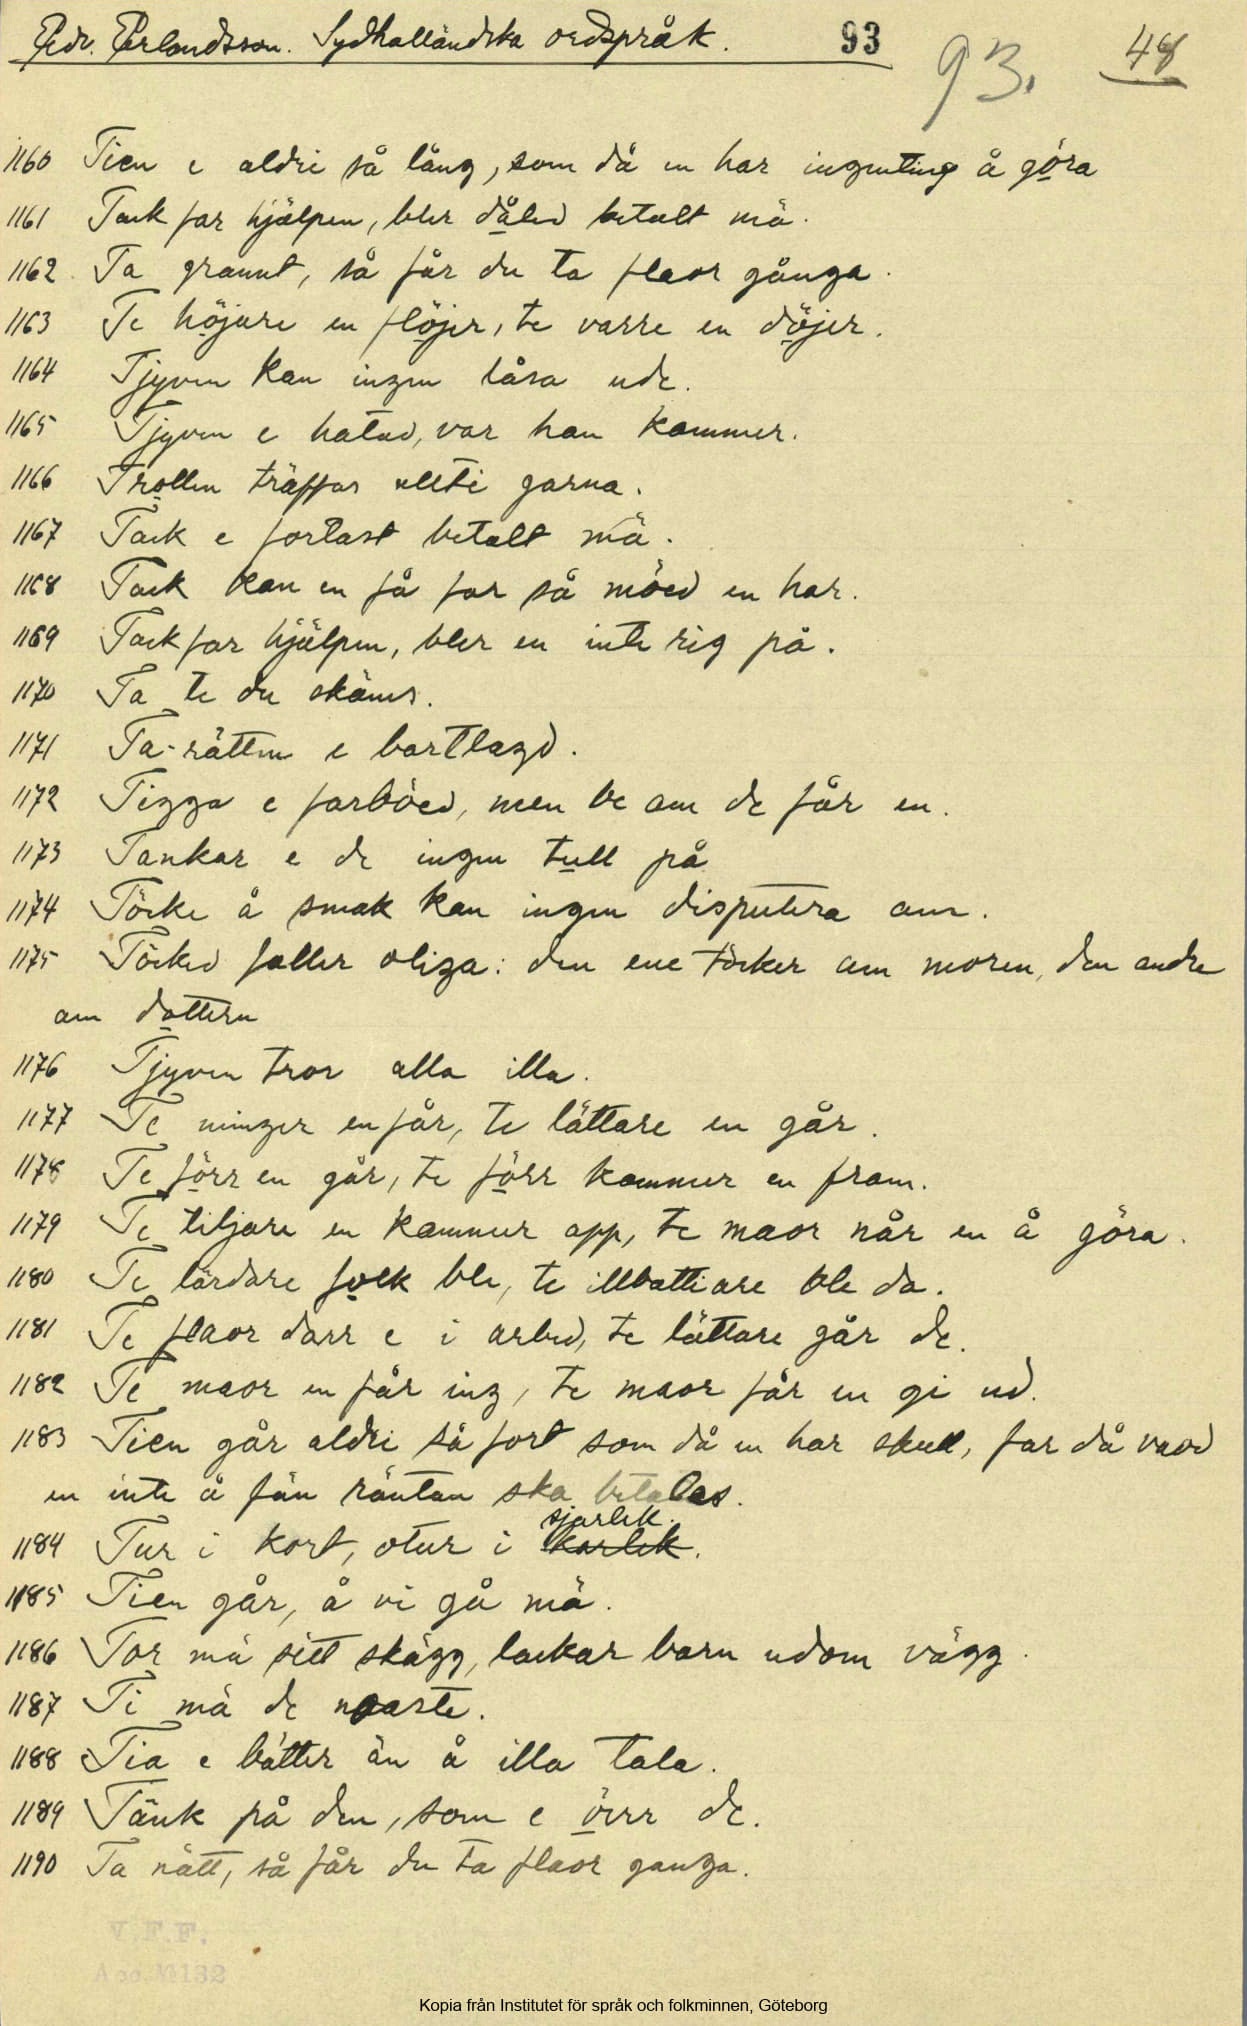 Pedr. Perlandsson. Sydhalländska ordspråk. 93 93. 48
1160 Tien e aldri så lång, som då en har ingenting å göra
1161 Tack far hjälpen, bler dåled betalt mä.
1162 Ta grannt, så får du ta flaor gånga.
1163 Te höjare en flöjer, te varre en döjer.
1164 Tjyven kan ingen låsa ude.
1165 Tjyven e hatad, var han kommer.
1166 Trollen träffas allti garna.
1167 Tack e fortast betalt mä.
1168 Tack kan en få far så möed en har.
1169 Tack far hjälpen, bler en inte rig på.
1170 Ta te du skäms.
1171 Ta-rätten e bortlagd.
1172 Tigga e farböed, men be am de får en.
1173 Tankar e de ingen tull på
1174 Töcke å smak kan ingen disputera am.
1175 Töcked faller oliga: den ene töcker am moren, den andre
am dottern
1176 Tjyven tror alla illa.
1177 Te minger en får, te lättare en går.
1178 Te förr en går, te förr kommer en fram.
1179 Te tiljare en kammer app, te maor når en å göra.
1180 Te lärdare folk ble, te illbattiare ble da.
1181 Te flaor darr e i arbed, te lättare går de.
1182 Te maor en får ing, te maor får en gi ud.
1183 Tien går aldri så fort som då en har skull, far då vaod
en inte å fån räntan ska betalas.
sjarlek.
1184 Tur i kort, otur i karlek.
1185 Tien går, å vi gå mä.
1186 Tor mä sitt skägg, lackar barn udom vägg.
1187 Ti mä de naaste.
1188 Tia e bätter än å illa tala.
1189 Tänk på den, som e örr de.
1190 Ta nätt, så får du ta flaor ganga.
V.F.F.
Acc. № 132
Kopia från Institutet för språk och folkminnen, Göteborg